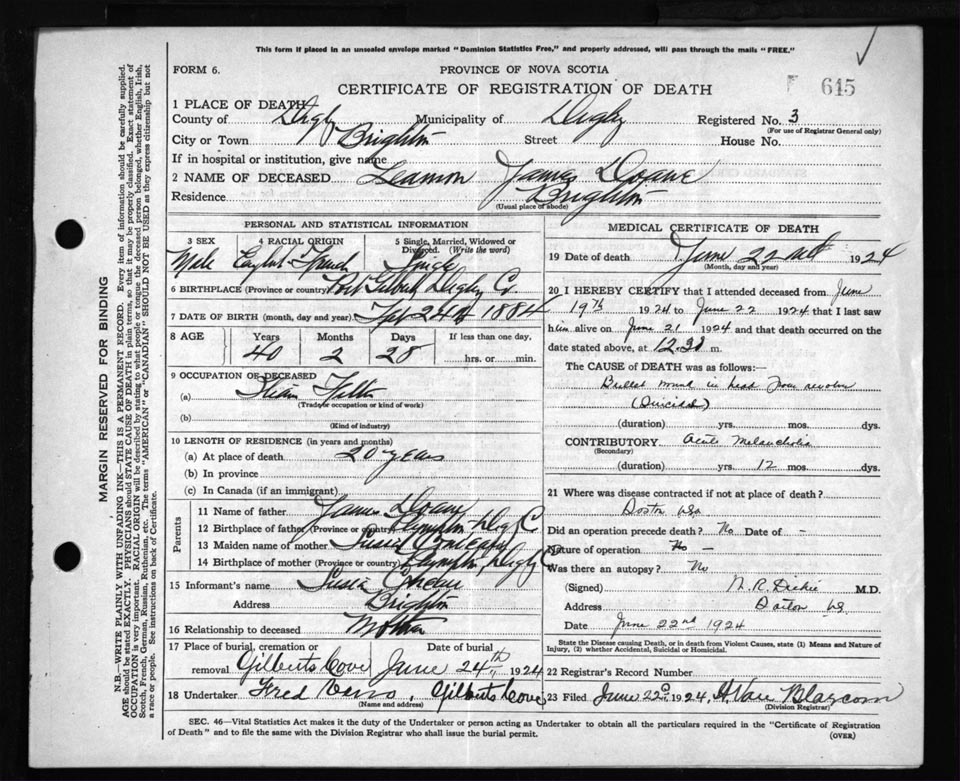 This form if placed in an unsealed envelope marked "Dominion Statistics Free," and properly addressed, will pass through the mails "FREE."
FORM 6.
PROVINCE OF NOVA SCOTIA
CERTIFICATE OF REGISTRATION OF DEATH
645
1 PLACE OF DEATH
County of Digby Municipality of Digby Registered No. 3
(For use of Registrar General only)
City or Town Brighton Street House No.
If in hospital or institution, give name
2 NAME OF DECEASED Leamon James Doane
Residence Brighton
(Usual place of abode)
PERSONAL AND STATISTICAL INFORMATION
3 SEX 4 RACIAL ORIGIN 5 Single, Married, Widowed or Divorced. (Write the word)
Male French Single
6 BIRTHPLACE (Province or country) Port Gilbert Digby Co.
7 DATE OF BIRTH (month, day and year) 24th 1884
8 AGE Years Months Days If less than one day,
40 2 28 hrs. or min.
9 OCCUPATION OF DECEASED
(a) Fitter
(Trade, occupation or kind of work)
(b)
(Kind of industry)
10 LENGTH OF RESIDENCE (in years and months)
(a) At place of death 20 years
(b) In province
(c) In Canada (if an immigrant)
Parents
11 Name of father James Doane
12 Birthplace of father (Province or country) Plympton Dig Co
13 Maiden name of mother Susie
14 Birthplace of mother (Province or country) Plympton, Digby Co
15 Informant's name Susie
Address Brighton
16 Relationship to deceased Mother
17 Place of burial, cremation or removal Gilberts Cove Date of burial June 24th, 1924
18 Undertaker Fred , Gilberts Cove
(Name and address)
MEDICAL CERTIFICATE OF DEATH
19 Date of death June 22 1924
(Month, day and year)
20 I HEREBY CERTIFY that I attended deceased from June
19th 1924 to June 22 1924 that I last saw
him alive on June 21 1924 and that death occurred on
date stated above, at 12.30 m.
The CAUSE of DEATH was as follows:—
Bullet wound in head from revolver
(Suicidal)
(duration) yrs. mos. dys.
CONTRIBUTORY Acute Melancholia
(Secondary)
(duration) yrs. 12 mos. dys.
21 Where was disease contracted if not at place of death?
Boston USA
Did an operation precede death? No Date of -
Nature of operation No -
Was there an autopsy? No
(Signed) N. R. Dickie M.D.
Address
Date June 22nd 1924
State the Disease causing Death, or in death from Violent Causes, state (1) Means and Nature of Injury, (2) whether Accidental, Suicidal or Homicidal.
22 Registrar's Record Number
23 Filed June 22nd 1924, H. Van Blarcom
(Division Registrar)
SEC. 46—Vital Statistics Act makes it the duty of the Undertaker or person acting as Undertaker to obtain all the particulars required in the "Certificate of Registration
of Death" and to file the same with the Division Registrar who shall issue the burial permit.
(OVER)
MARGIN RESERVED FOR BINDING
N.B.—WRITE PLAINLY WITH UNFADING INK—THIS IS A PERMANENT RECORD. Every item of information should be carefully supplied.
AGE should be stated EXACTLY. PHYSICIANS should STATE CAUSE OF DEATH in plain terms, so that it may be properly classified. Exact statement of
OCCUPATION is very important. RACIAL ORIGIN will be described by stating to what people or tongue the deceased person belonged, whether English, Irish,
Scotch, French, German, Russian, Ruthenian, etc. The terms "AMERICAN" or "CANADIAN" SHOULD NOT BE USED as they express citizenship but not
a race or people. See instructions on back of Certificate.